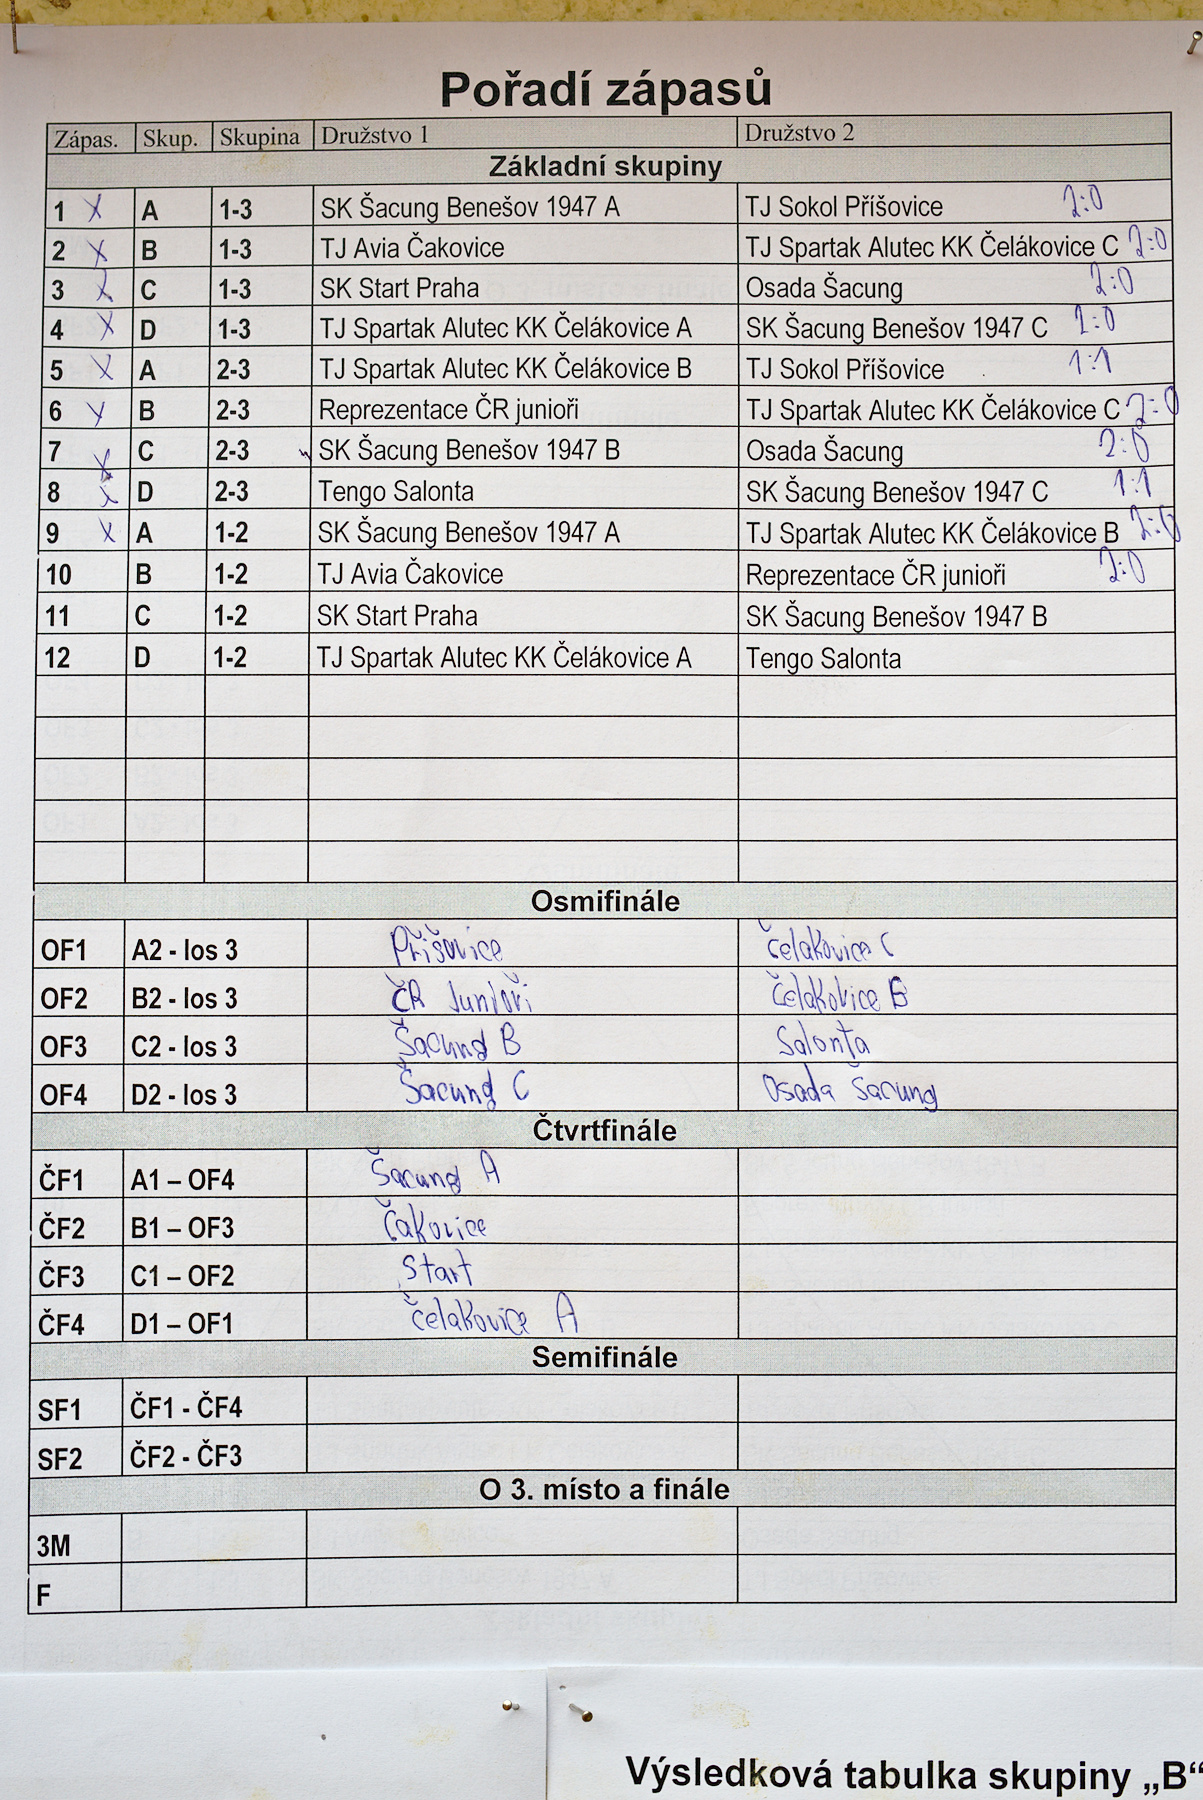 Pořadí zápasů
Zápas. Skup. Skupina Družstvo 1 Družstvo 2
Základní skupiny
1 x A 1-3 SK Šacung Benešov 1947 A TJ Sokol Příšovice 2:0
2 x B 1-3 TJ Avia Čakovice TJ Spartak Alutec KK Čelákovice C 2:0
3 x C 1-3 SK Start Praha Osada Šacung 2:0
4 x D 1-3 TJ Spartak Alutec KK Čelákovice A SK Šacung Benešov 1947 C 2:0
5 x A 2-3 TJ Spartak Alutec KK Čelákovice B TJ Sokol Příšovice 1:1
6 x B 2-3 Reprezentace ČR junioři TJ Spartak Alutec KK Čelákovice C 2:0
7 x C 2-3 SK Šacung Benešov 1947 B Osada Šacung 2:0
8 x D 2-3 Tengo Salonta SK Šacung Benešov 1947 C 1:1
9 x A 1-2 SK Šacung Benešov 1947 A TJ Spartak Alutec KK Čelákovice B 2:0
10 B 1-2 TJ Avia Čakovice Reprezentace ČR junioři 2:0
11 C 1-2 SK Start Praha SK Šacung Benešov 1947 B
12 D 1-2 TJ Spartak Alutec KK Čelákovice A Tengo Salonta
Osmifinále
OF1 A2 - los 3 Příšovice Čelakovice C
OF2 B2 - los 3 ČR Junioři Čelakovice B
OF3 C2 - los 3 Šacung B Salonta
OF4 D2 - los 3 Šacung C Osada Šacung
Čtvrtfinále
ČF1 A1 – OF4 Šacung A
ČF2 B1 – OF3 Čakovice
ČF3 C1 – OF2 Start
ČF4 D1 – OF1 Čelakovice A
Semifinále
SF1 ČF1 - ČF4
SF2 ČF2 - ČF3
O 3. místo a finále
3M
F
Výsledková tabulka skupiny „B“